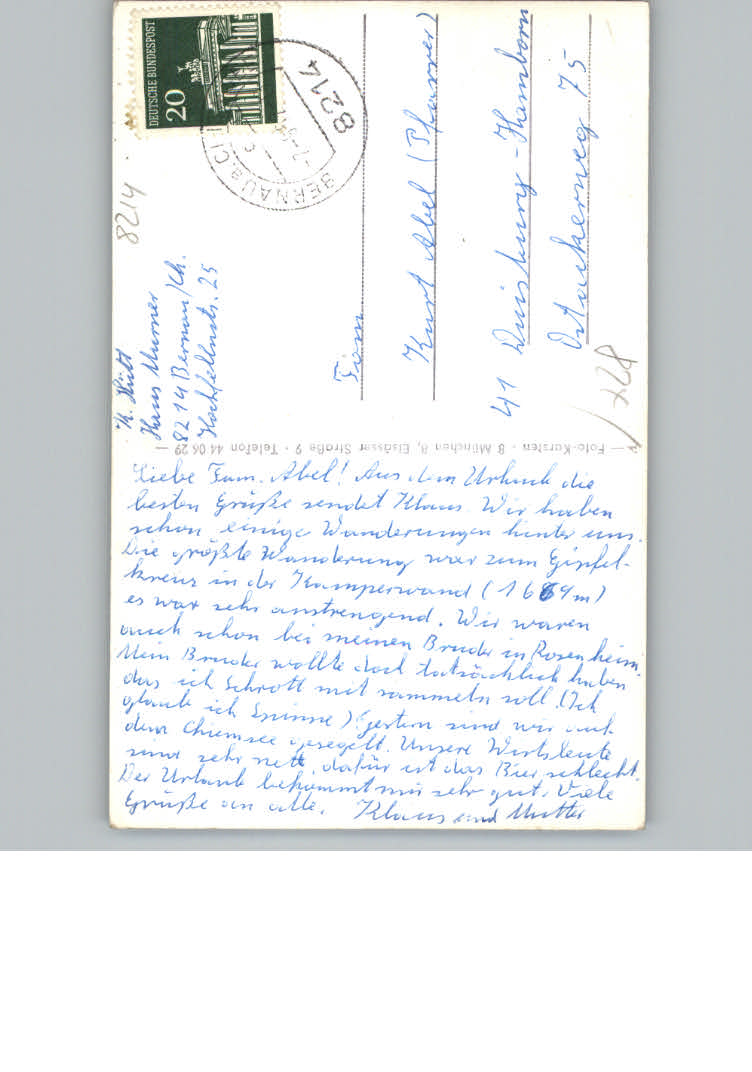 Liebe Fam. Abel! Aus dem Urlaub die
besten Grüße sendet Klaus. Wir haben
schon einige Wanderungen hinter uns.
Die größte Wanderung war zum Gipfel-
kreuz in der Kamperwand (1669m)
es war sehr anstrengend. Wir waren
auch schon bei meinen Bruder in Rosenheim.
Mein Bruder wollte doch tatsächlich haben
das ich Schrott mit sammeln soll. (Ich
glaub ich Spinne) Gestern sind wir auf
dem Chiemsee gesegelt. Unsere Wirtsleute
sind sehr nett, dafür ist das Bier schlecht.
Der Urlaub bekommt mir sehr gut. Viele
Grüße an alle. Klaus und Mutter
Foto-Kersten - 8 München 8, Elsässer Straße 9 - Telefon 44 06 29
Haus Murner
8214 Bernau/Ch.
Hochfellnstr. 25
8214
DEUTSCHE BUNDESPOST
20
8214
BERNAU a. CHI
Fam
Kurt Abel (Pfarrer)
41 Duisburg-Hamborn
Ostackerweg 75